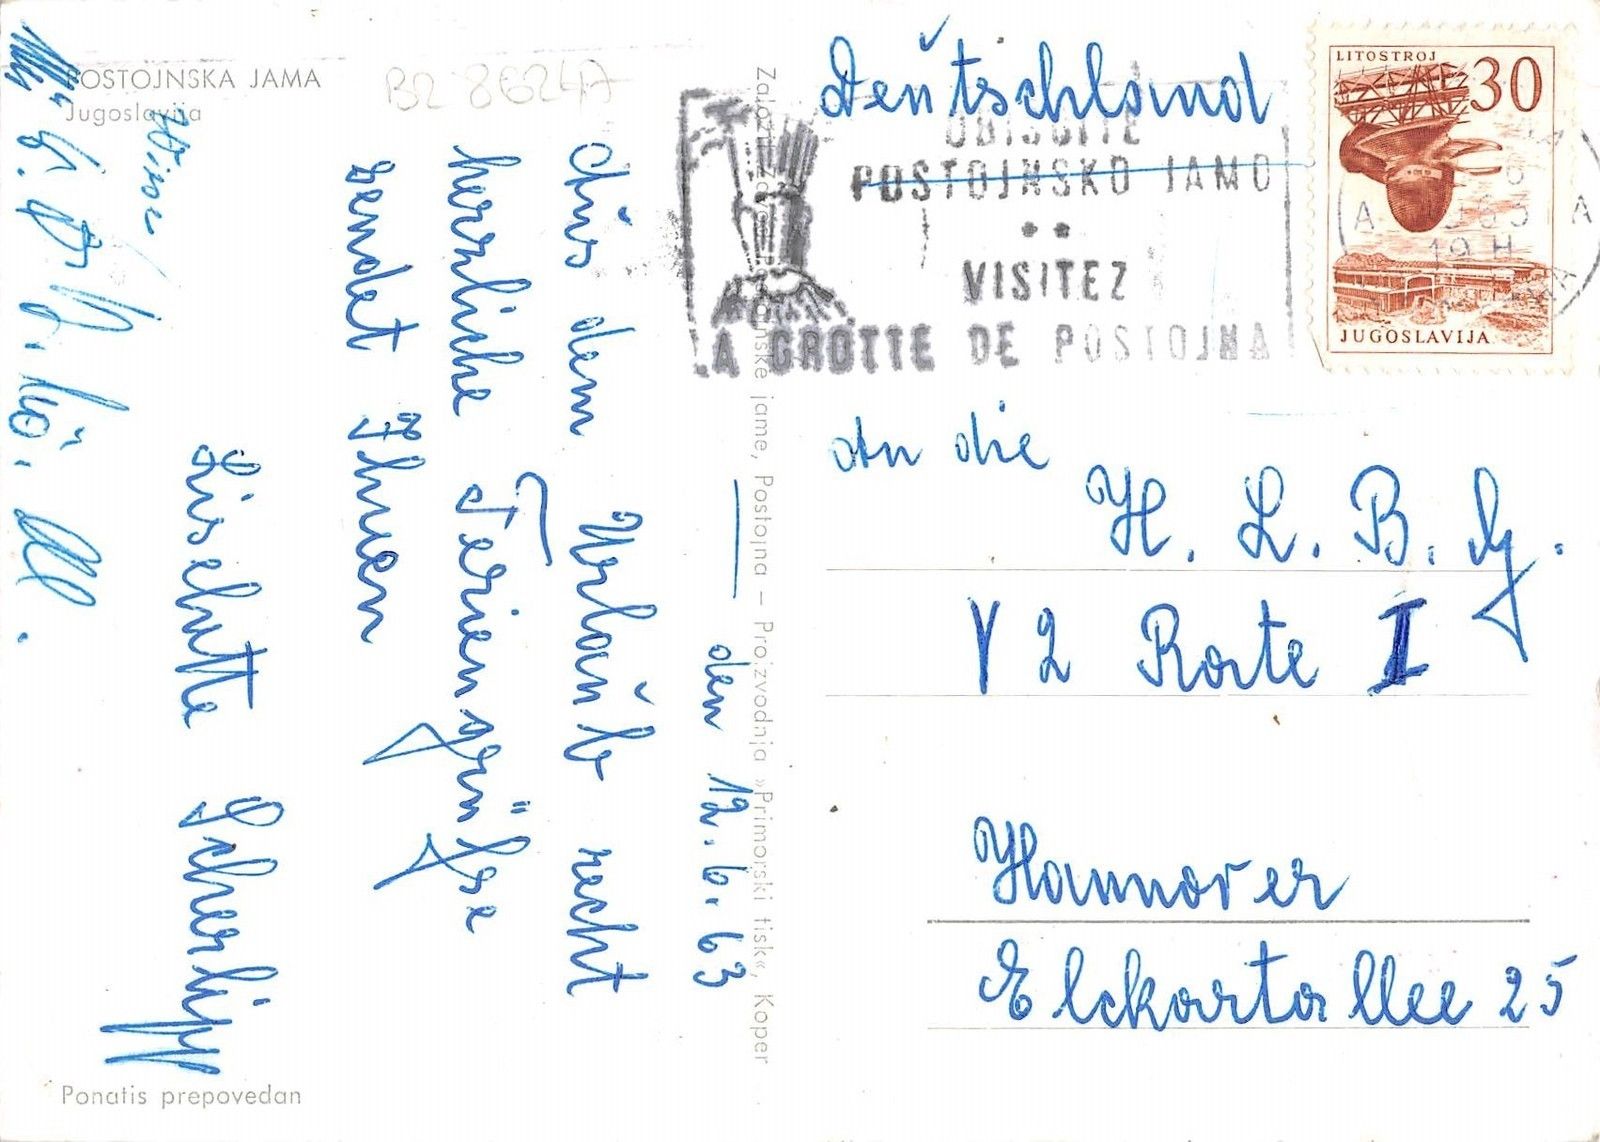 POSTOJNSKA JAMA
Jugoslavija
B2 86247
den 12.6.63
Aus dem Urlaub recht
herzliche Feriengrüße
sendet Ihnen
Liselotte
Ponatis prepovedan
Založil Zavod Postojnske jame, Postojna – Proizvodnja »Primorski tisk«, Koper
Deutschland
OBIŠČITE
POSTOJNSKO JAMO
VISITEZ
LA GROTTE DE POSTOJNA
LITOSTROJ
30
JUGOSLAVIJA
An die
H. L. B. G.
V 2 Rate I
Hannover
Elckartallee 25